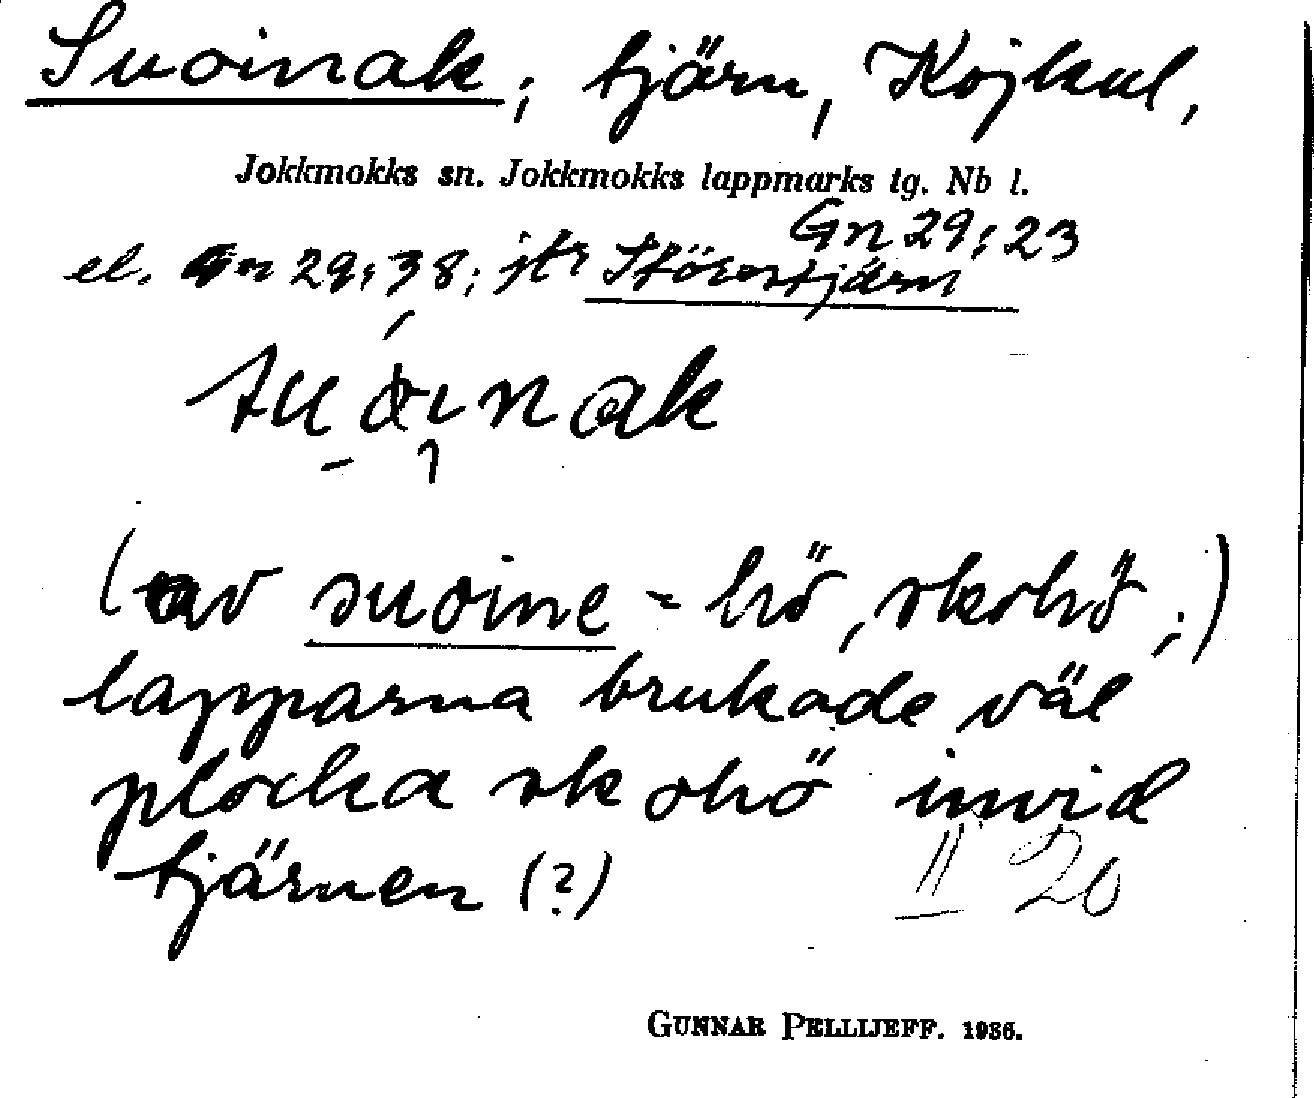 Suoinak, tjärn, Kojkul,
Jokkmokks sn. Jokkmokks lappmarks tg. Nb l.
Gn 29:23
el. Gn 29:38; jfr
(av suoine - hö, skohö;)
lapparna brukade väl
plocka skohö invid
tjärnen (?)
II 20
GUNNAR PELLIJEFF. 1936.